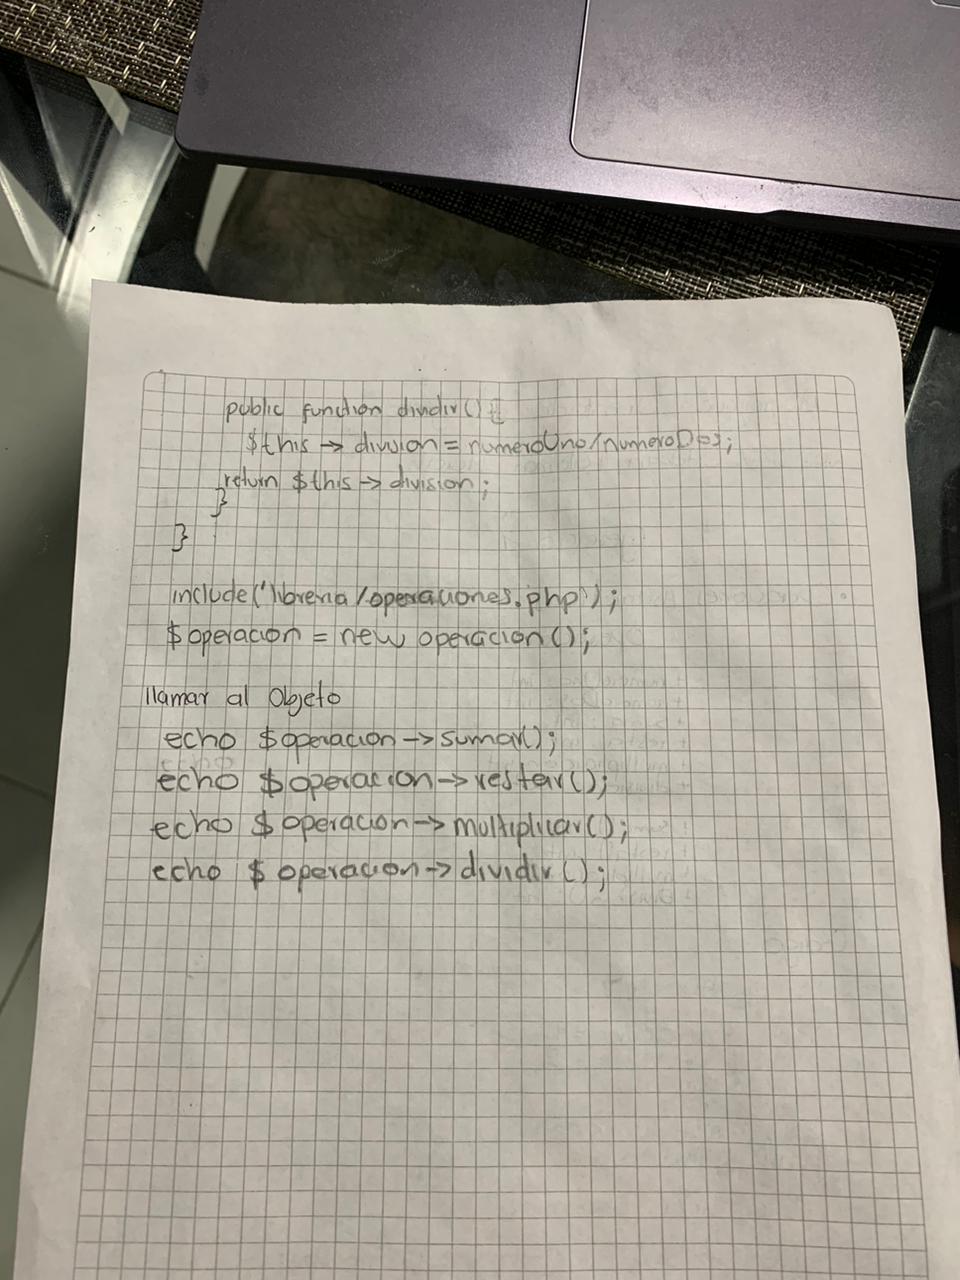 public function dividir() {
$this -> division = numeroUno/numeroDos;
return $this -> division;
}
}
include('libreria/operaciones.php');
$operacion = new operacion();
llamar al Objeto
echo $operacion->sumar();
echo $operacion->restar();
echo $operacion->multiplicar();
echo $operacion->dividir();